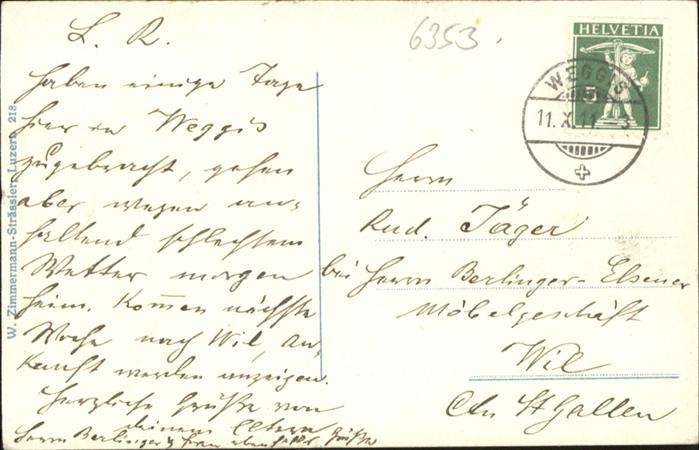 L. R.
haben einige Tage
hier in Weggis
zugebracht, gehen
aber wegen an-
haltend schlechtem
Wetter morgen
heim. Kommen nächste
Woche nach Wil, An-
kunft werden anzeigen.
Herzliche Grüße von
deinen Eltern
Herrn Berlinger & Frau ebenfalls Grüße
W. Zimmermann-Strässler, Luzern 218
6353.
HELVETIA
5
WEGGIS
11.X.11 - 3
Herrn
Rud. Jäger
bei Herrn Berlinger-Elsener
Möbelgeschäft
Wil
Ctn St Gallen